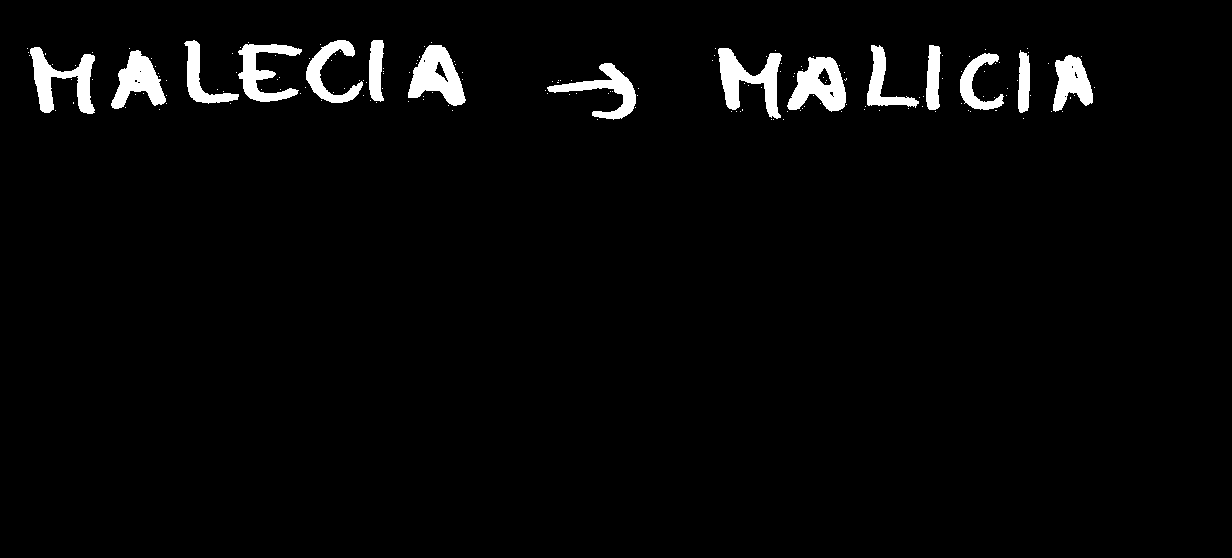 MALECIA → MALICIA